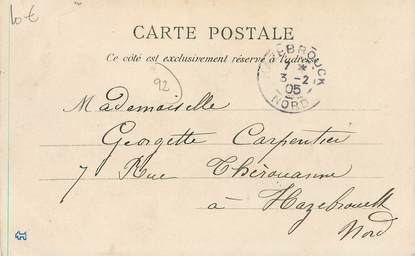 10 €
CARTE POSTALE
Ce côté est exclusivement réservé à l'adresse
HAZEBROUCK
7 *
3 -2
05
NORD
92
Mademoiselle
Georgette Carpentier
7 Rue Thérouanne
à Hazebrouck
Nord